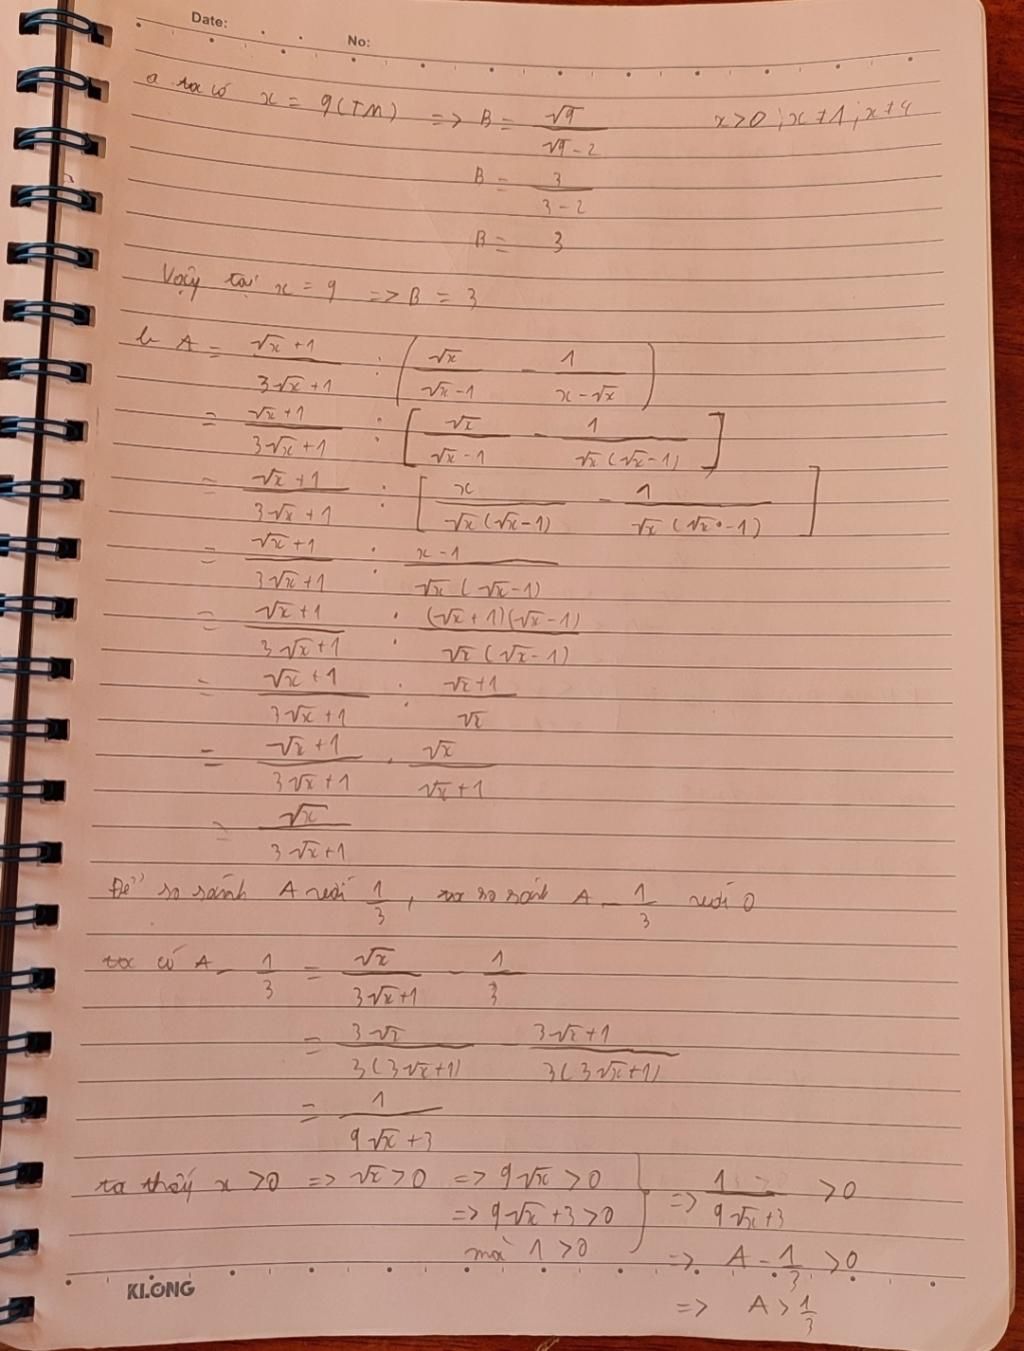 Date:
No:
a ta có x = 9 (TM) => B = √9 / (√9 - 2) x>0 ; x≠1 ; x≠4
B = 3 / (3 - 2)
B = 3
Vậy tại x = 9 => B = 3
b A = (√x + 1) / (3√x + 1) : (√x / (√x - 1) - 1 / (x - √x))
= (√x + 1) / (3√x + 1) : [√x / (√x - 1) - 1 / (√x (√x - 1))]
= (√x + 1) / (3√x + 1) : [x / (√x (√x - 1)) - 1 / (√x (√x - 1))]
= (√x + 1) / (3√x + 1) : (x - 1) / (√x (√x - 1))
= (√x + 1) / (3√x + 1) : (√x + 1)(√x - 1) / (√x (√x - 1))
= (√x + 1) / (3√x + 1) : (√x + 1) / √x
= (√x + 1) / (3√x + 1) . √x / (√x + 1)
= √x / (3√x + 1)
Để so sánh A với 1/3, ta so sánh A - 1/3 với 0
ta có A - 1/3 = √x / (3√x + 1) - 1/3
= 3√x / (3(3√x + 1)) - (3√x + 1) / (3(3√x + 1))
= 1 / (9√x + 3)
ta thấy x > 0 => √x > 0 => 9√x > 0
=> 9√x + 3 > 0
mà 1 > 0
=> 1 / (9√x + 3) > 0
=> A - 1/3 > 0
=> A > 1/3
KLONG